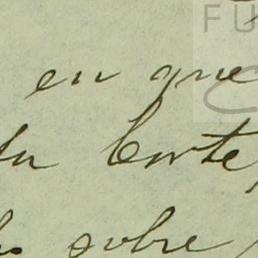 en que
la Corte,
sobre